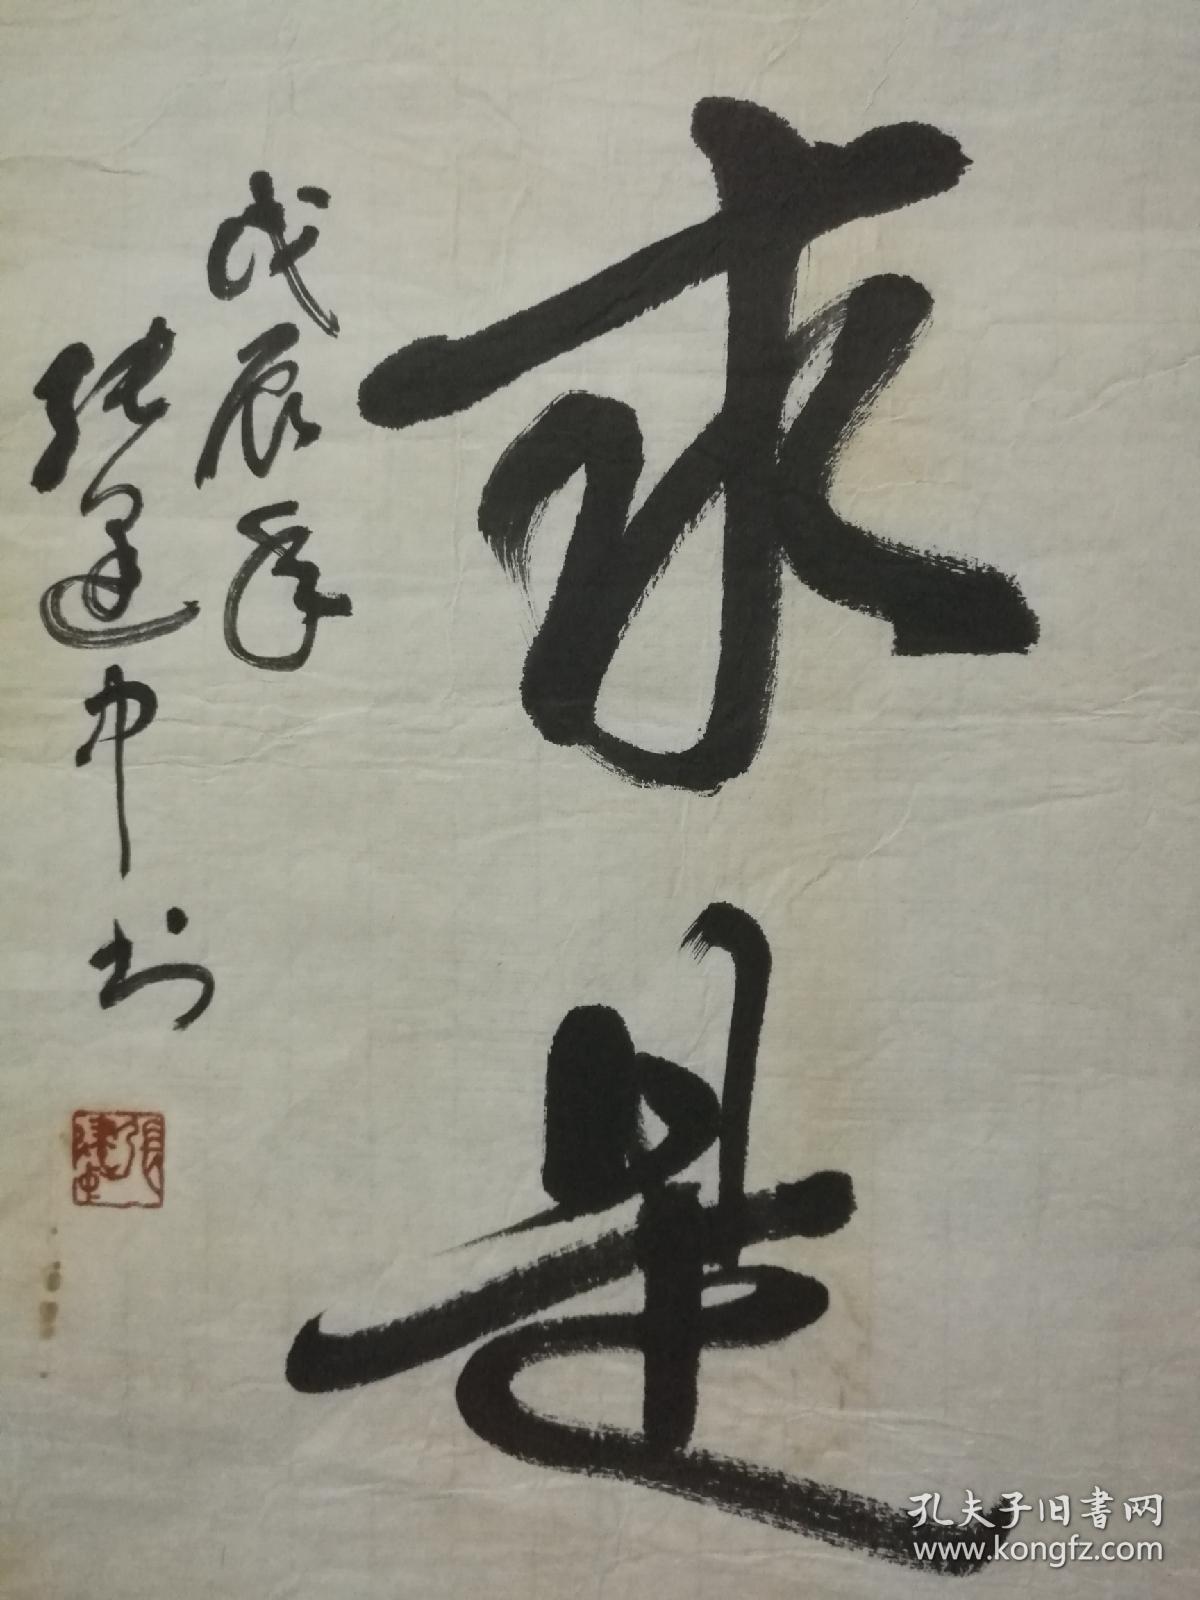 求是
戊辰年
张建中书
張建中
孔夫子旧書网
www.kongfz.com